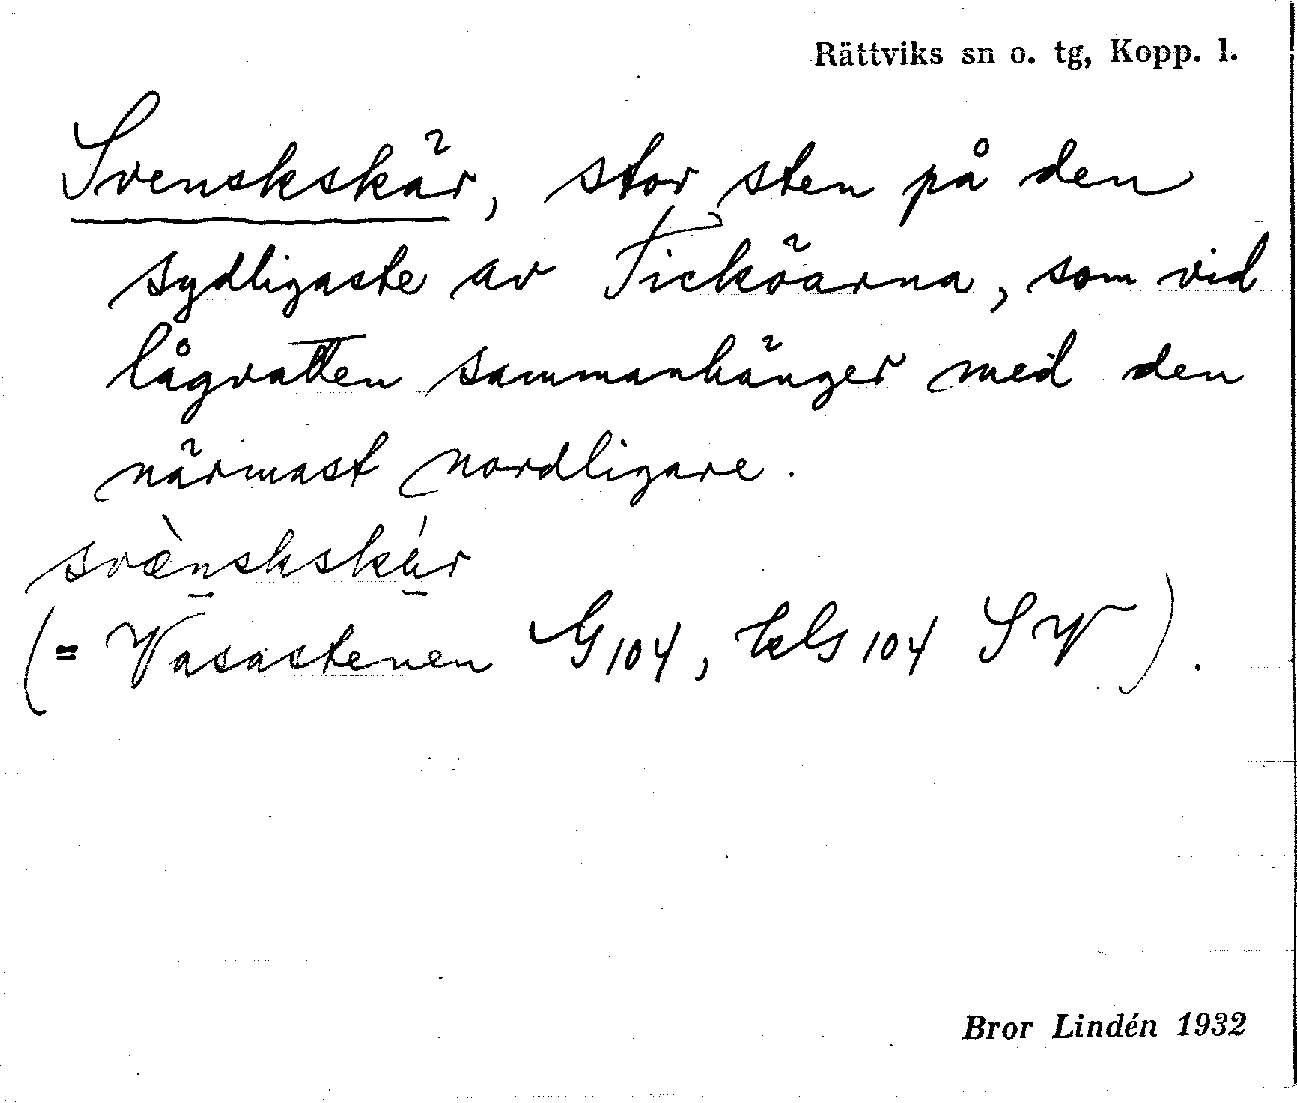 Rättviks sn o. tg, Kopp. l.
Svenskskär, stor sten på den
sydligaste av Ticköarna, som vid
lågvatten sammanhänger med den
närmast nordligare.
svæ̀nskskä́r
(= Vasastenen G 104, Els 104 SV).
Bror Lindén 1932